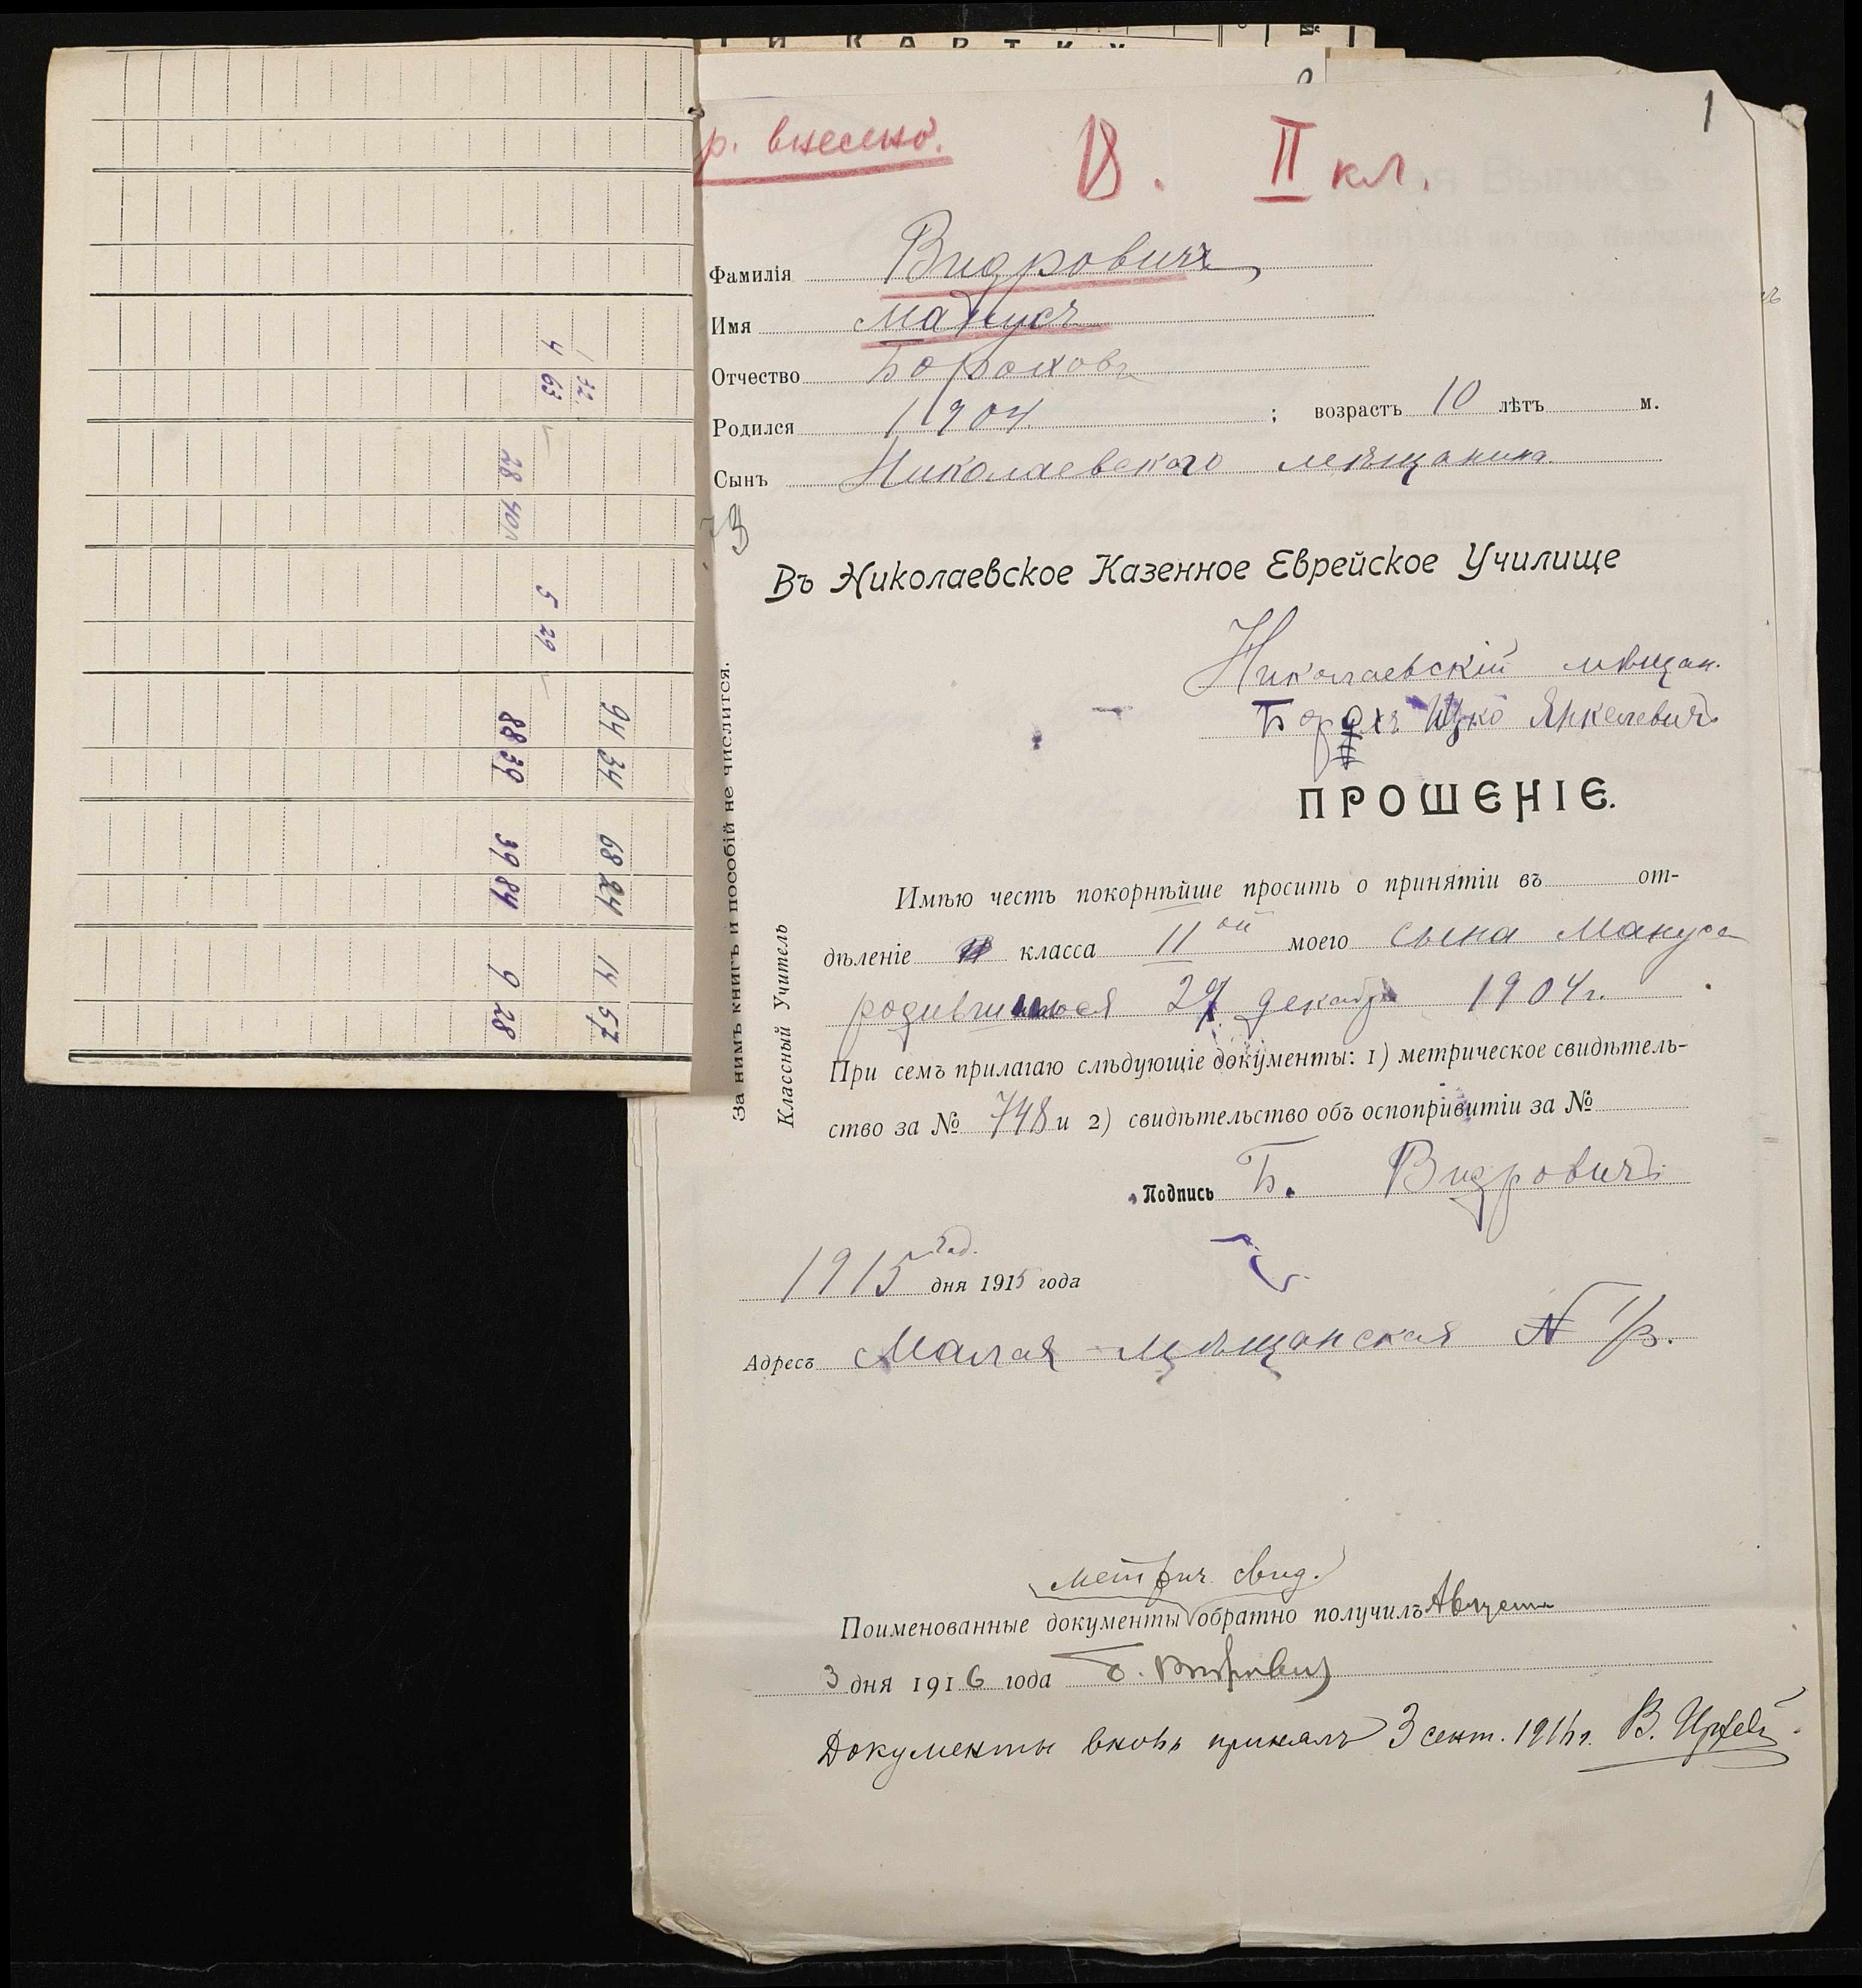 1
р. внесено. В. II кл.
Фамилія Видровичъ,
Имя Манусъ
Отчество Бороховъ
Родился 1904 ; возрастъ 10 лѣтъ м.
Сынъ Николаевского мѣщанина
Въ Николаевское Казенное Еврейское Училище
Николаевскій мѣщан.
Борохъ Ицко Янкелевичъ
ПРОШЕНІЕ.
Имѣю честь покорнѣйше просить о принятіи въ от-
дѣленіе класса IIой моего сына Мануса
родившегося декабря 1904 г.
При семъ прилагаю слѣдующіе документы: 1) метрическое свидѣтель-
ство за № 748 и 2) свидѣтельство объ оспопривитіи за №
Подпись Б. Видровичъ
1915 год.
дня 1915 года
Адресъ Малая Мѣщанская №
Метрич. свид.
Поименованные документы обратно получилъ Августа
3 дня 1916 года Б. Видровичъ
Документы вновь принялъ 3 сент. 1916 г. В.
За нимъ книгъ и пособій не числится.
Классный Учитель
4 63
1 72
28 40
5 29
88 39
94 34
39 84
68 24
9 28
14 57